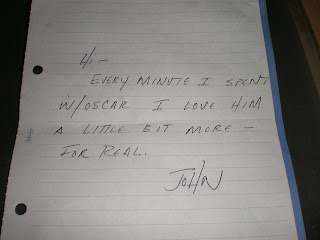 Hi -
EVERY MINUTE I SPENT
W/OSCAR I LOVE HIM
A LITTLE BIT MORE -
FOR REAL.
JOHN